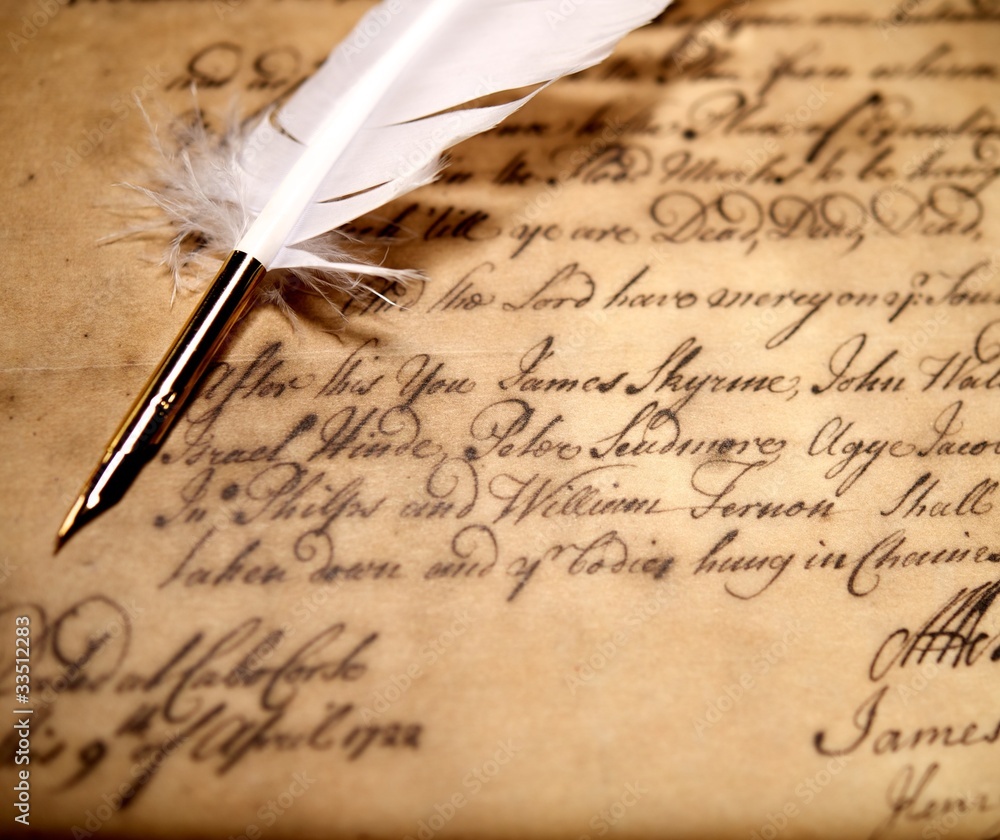 from whence
Place of Execution
in the Flood Marks to be hang
till ye are Dead, Dead, Dead.
And the Lord have mercy on yr. Soul
After this You James Skyrme, John Wal
Israel Hinde, Peter Scudmore, Agge Jacob
Jn Philps and William Fernon Shall
taken down and yr bodies hung in Chaines
at Cabo Corso
is 9th of April 1722
James
Henr
Adobe Stock | #33512283